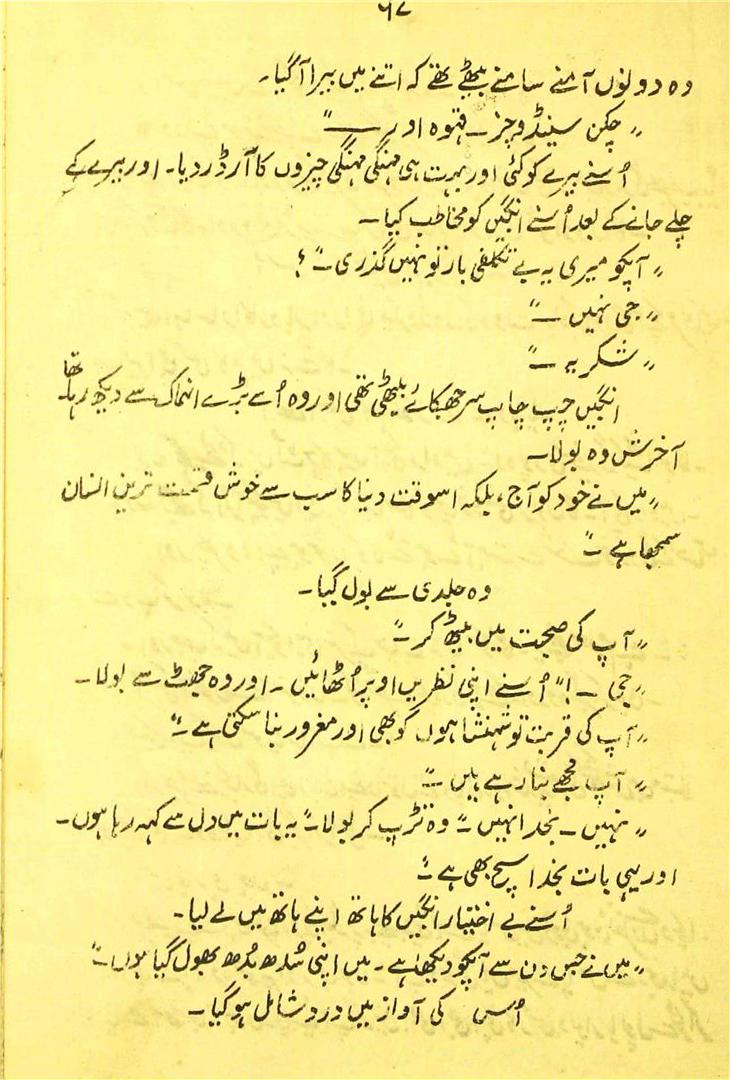 ۶۷
وہ دونوں آمنے سامنے بیٹھے تھے کہ اتنے میں بیرا آگیا۔
"چکن سینڈوچز۔ قہوہ اور ـــ"
اُسنے بیرے کو کئی اور بہت ہی مہنگی مہنگی چیزوں کا آرڈر دیا۔ اور بیرے کے
چلے جانے کے بعد اُسنے انگبیں کو مخاطب کیا۔
"آپکو میری یہ بے تکلفی بار تو نہیں گذری۔"؟
"جی نہیں ــ"
"شکریہ ــ"
انگبیں چپ چاپ سر جھکائے بیٹھی تھی اور وہ اُسے بڑے انہماک سے دیکھ رہا تھا۔
آخرش وہ بولا۔
"میں نے خود کو آج، بلکہ اسوقت دنیا کا سب سے خوش قسمت ترین انسان
سمجھا ہے ــ"
وہ جلدی سے بول گیا۔
"آپ کی صحبت میں بیٹھ کر ــ"
"جی ــ!" اُسنے اپنی نظریں اوپر اُٹھائیں ۔ اور وہ جھٹ سے بولا ۔
"آپ کی قربت تو شہنشاہوں کو بھی اور مغرور بنا سکتی ہے ــ"
"آپ مجھے بنا رہے ہیں ــ"
"نہیں ۔ بخدا نہیں ــ" وہ تڑپ کر بولا ــ "یہ بات میں دل سے کہہ رہا ہوں ۔
اور یہی بات بخدا سچ بھی ہے ــ"
اُسنے بے اختیار انگبیں کا ہاتھ اپنے ہاتھ میں لے لیا۔
"میں نے جس دن سے آپکو دیکھا ہے ۔ میں اپنی سُدھ بُدھ بھول گیا ہوں ــ"
اُس کی آواز میں درد شامل ہو گیا ۔